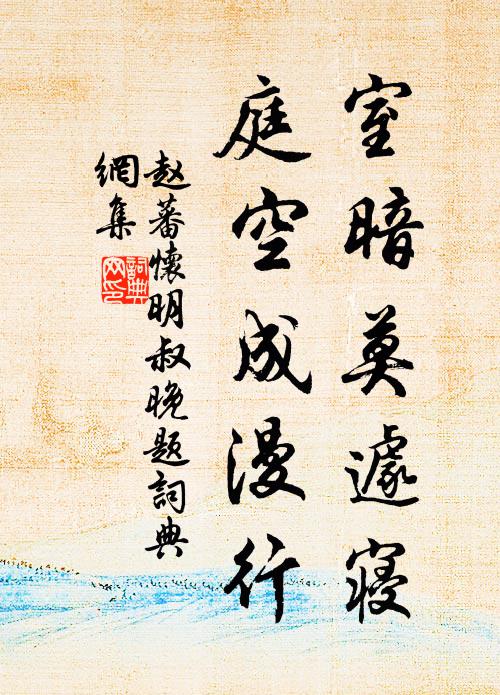 室暗莫遽寝
庭空成漫行
赵蕃懷明叔晚题詞典
網集
詞典网印